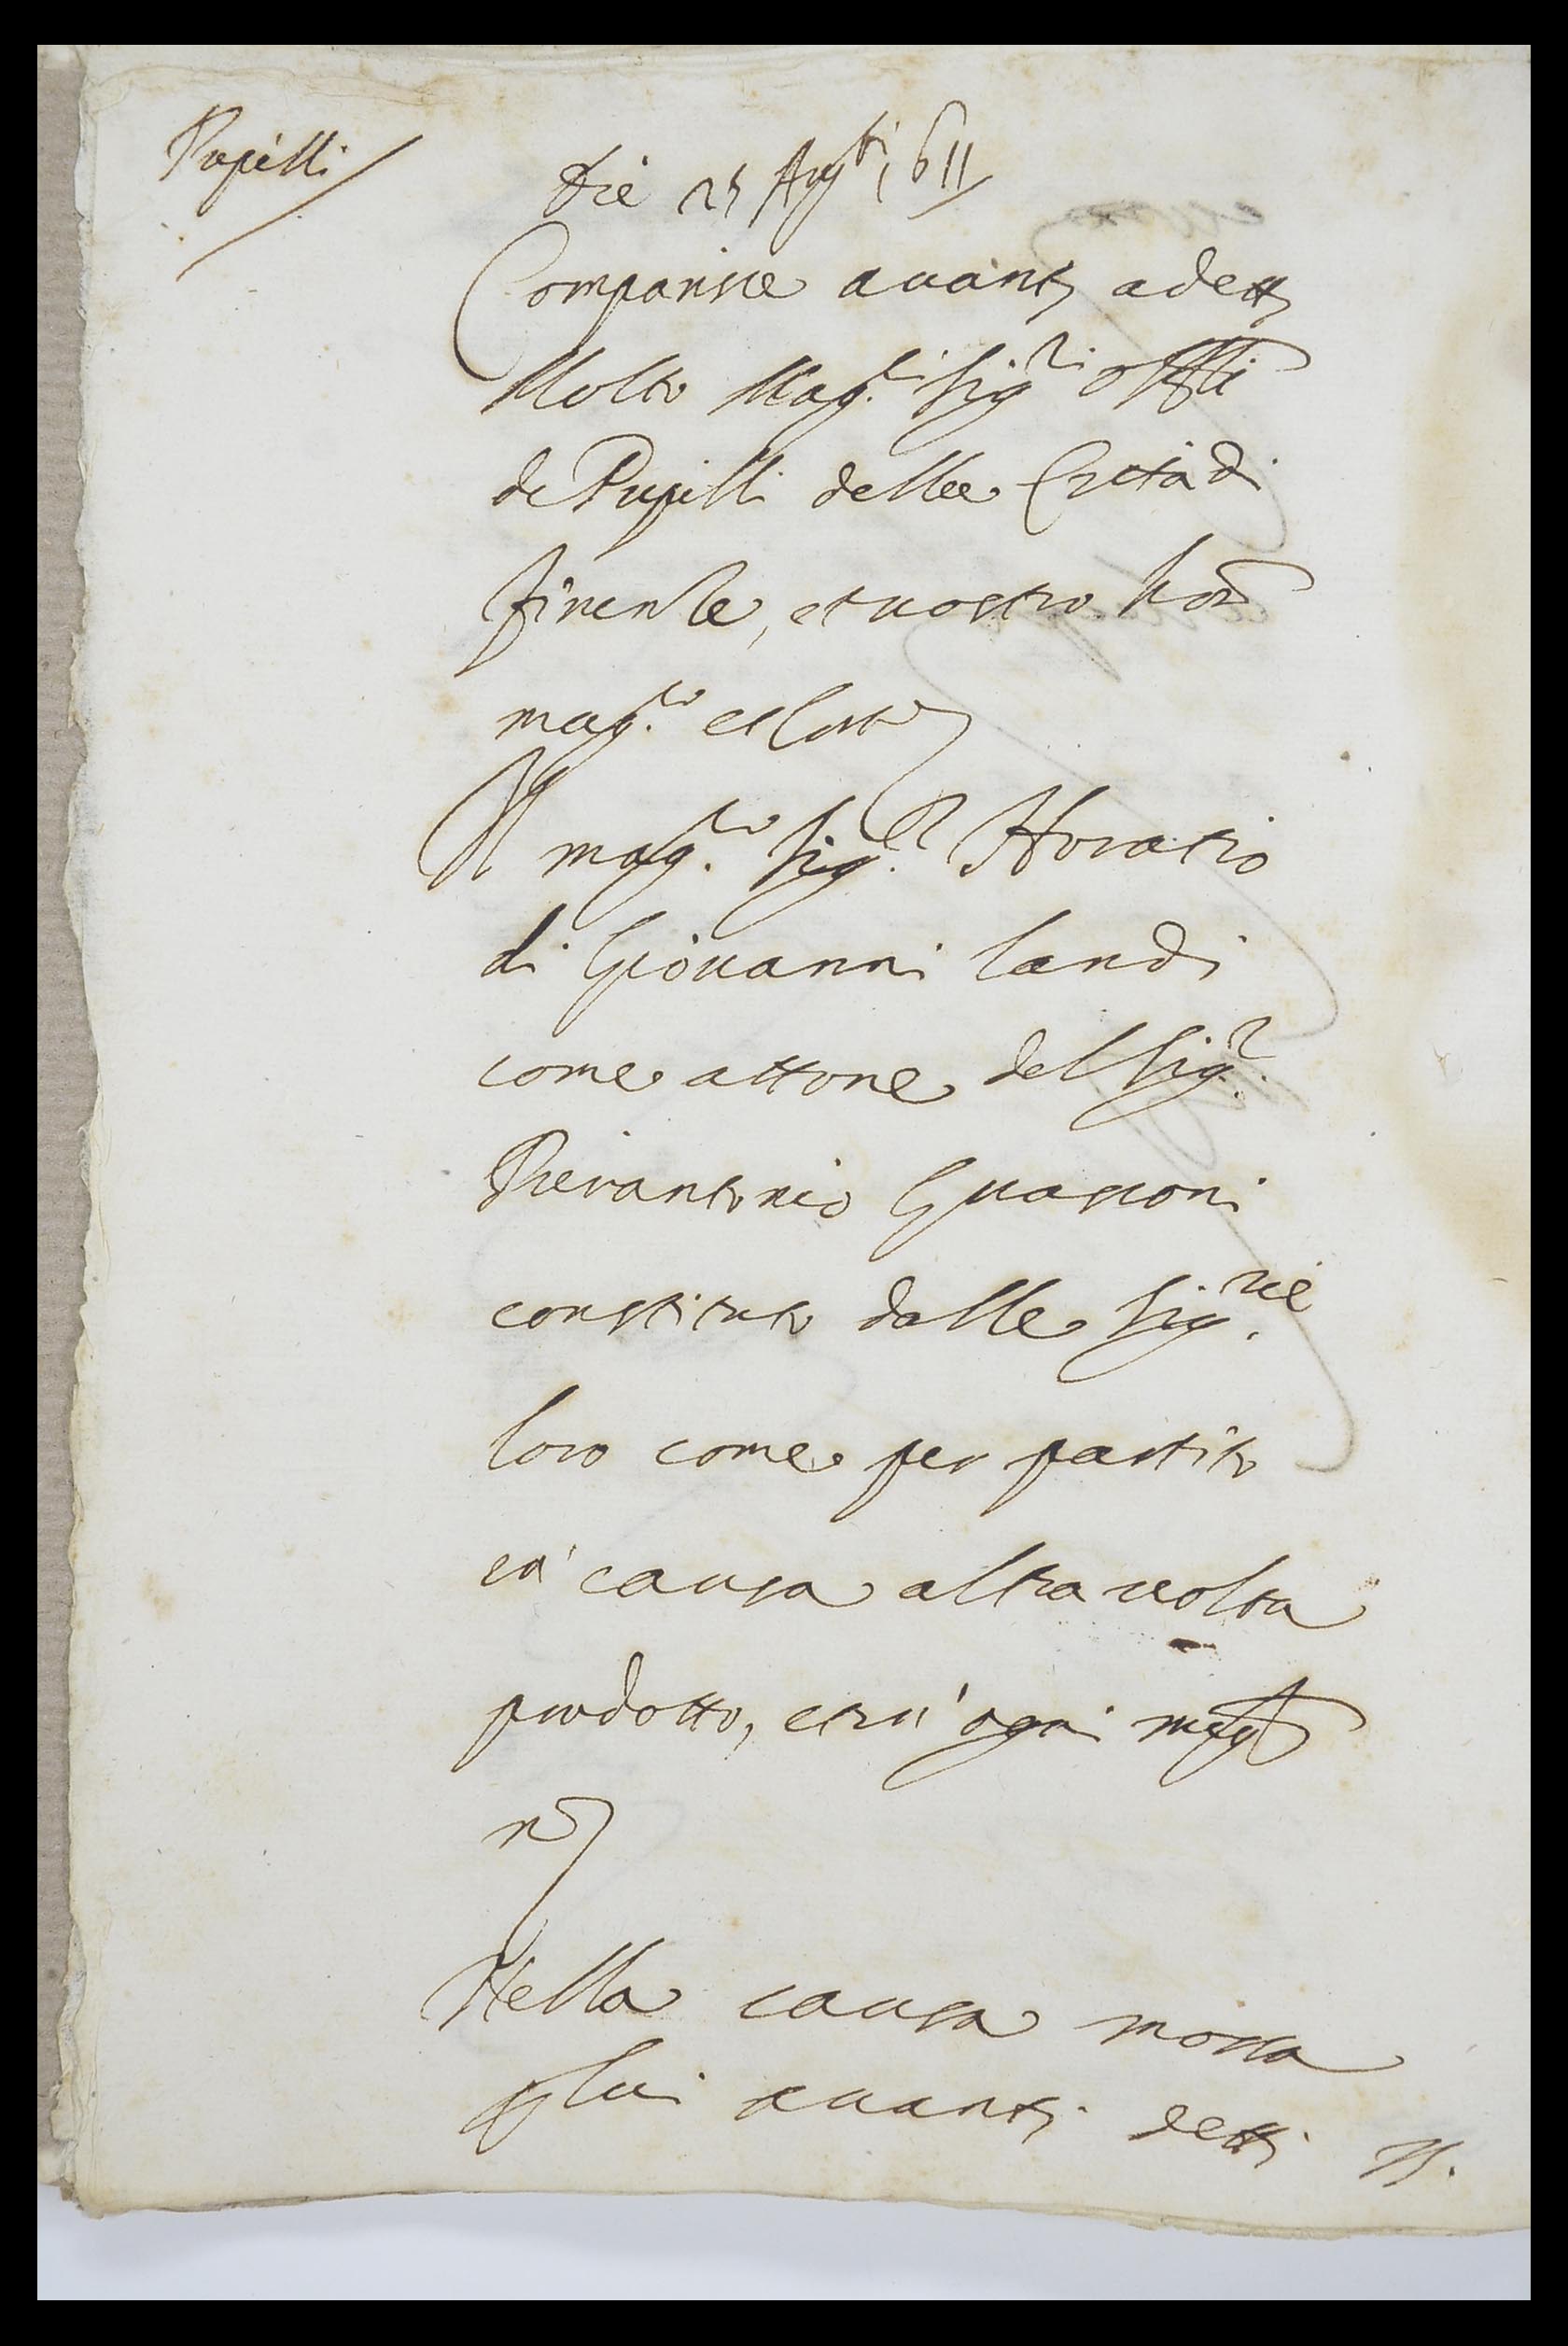 Pupilli
Die 25 Ag.ti 1611
Comparisce auanti a detti
Molto Mag.ci Sig.ri Off.li
de Pupilli della Città di
firenze, et uostro
mag.to et Corte
Il mag.co Sig.r Horatio
di Giouanni Landi
come attore del Sig.r
Pierantonio Guasconi
constituto dalle Sig.rie
loro come per partito
in causa altra uolta
prodotto, et in ogni
Nella causa mossa
p lui auanti detti SS.